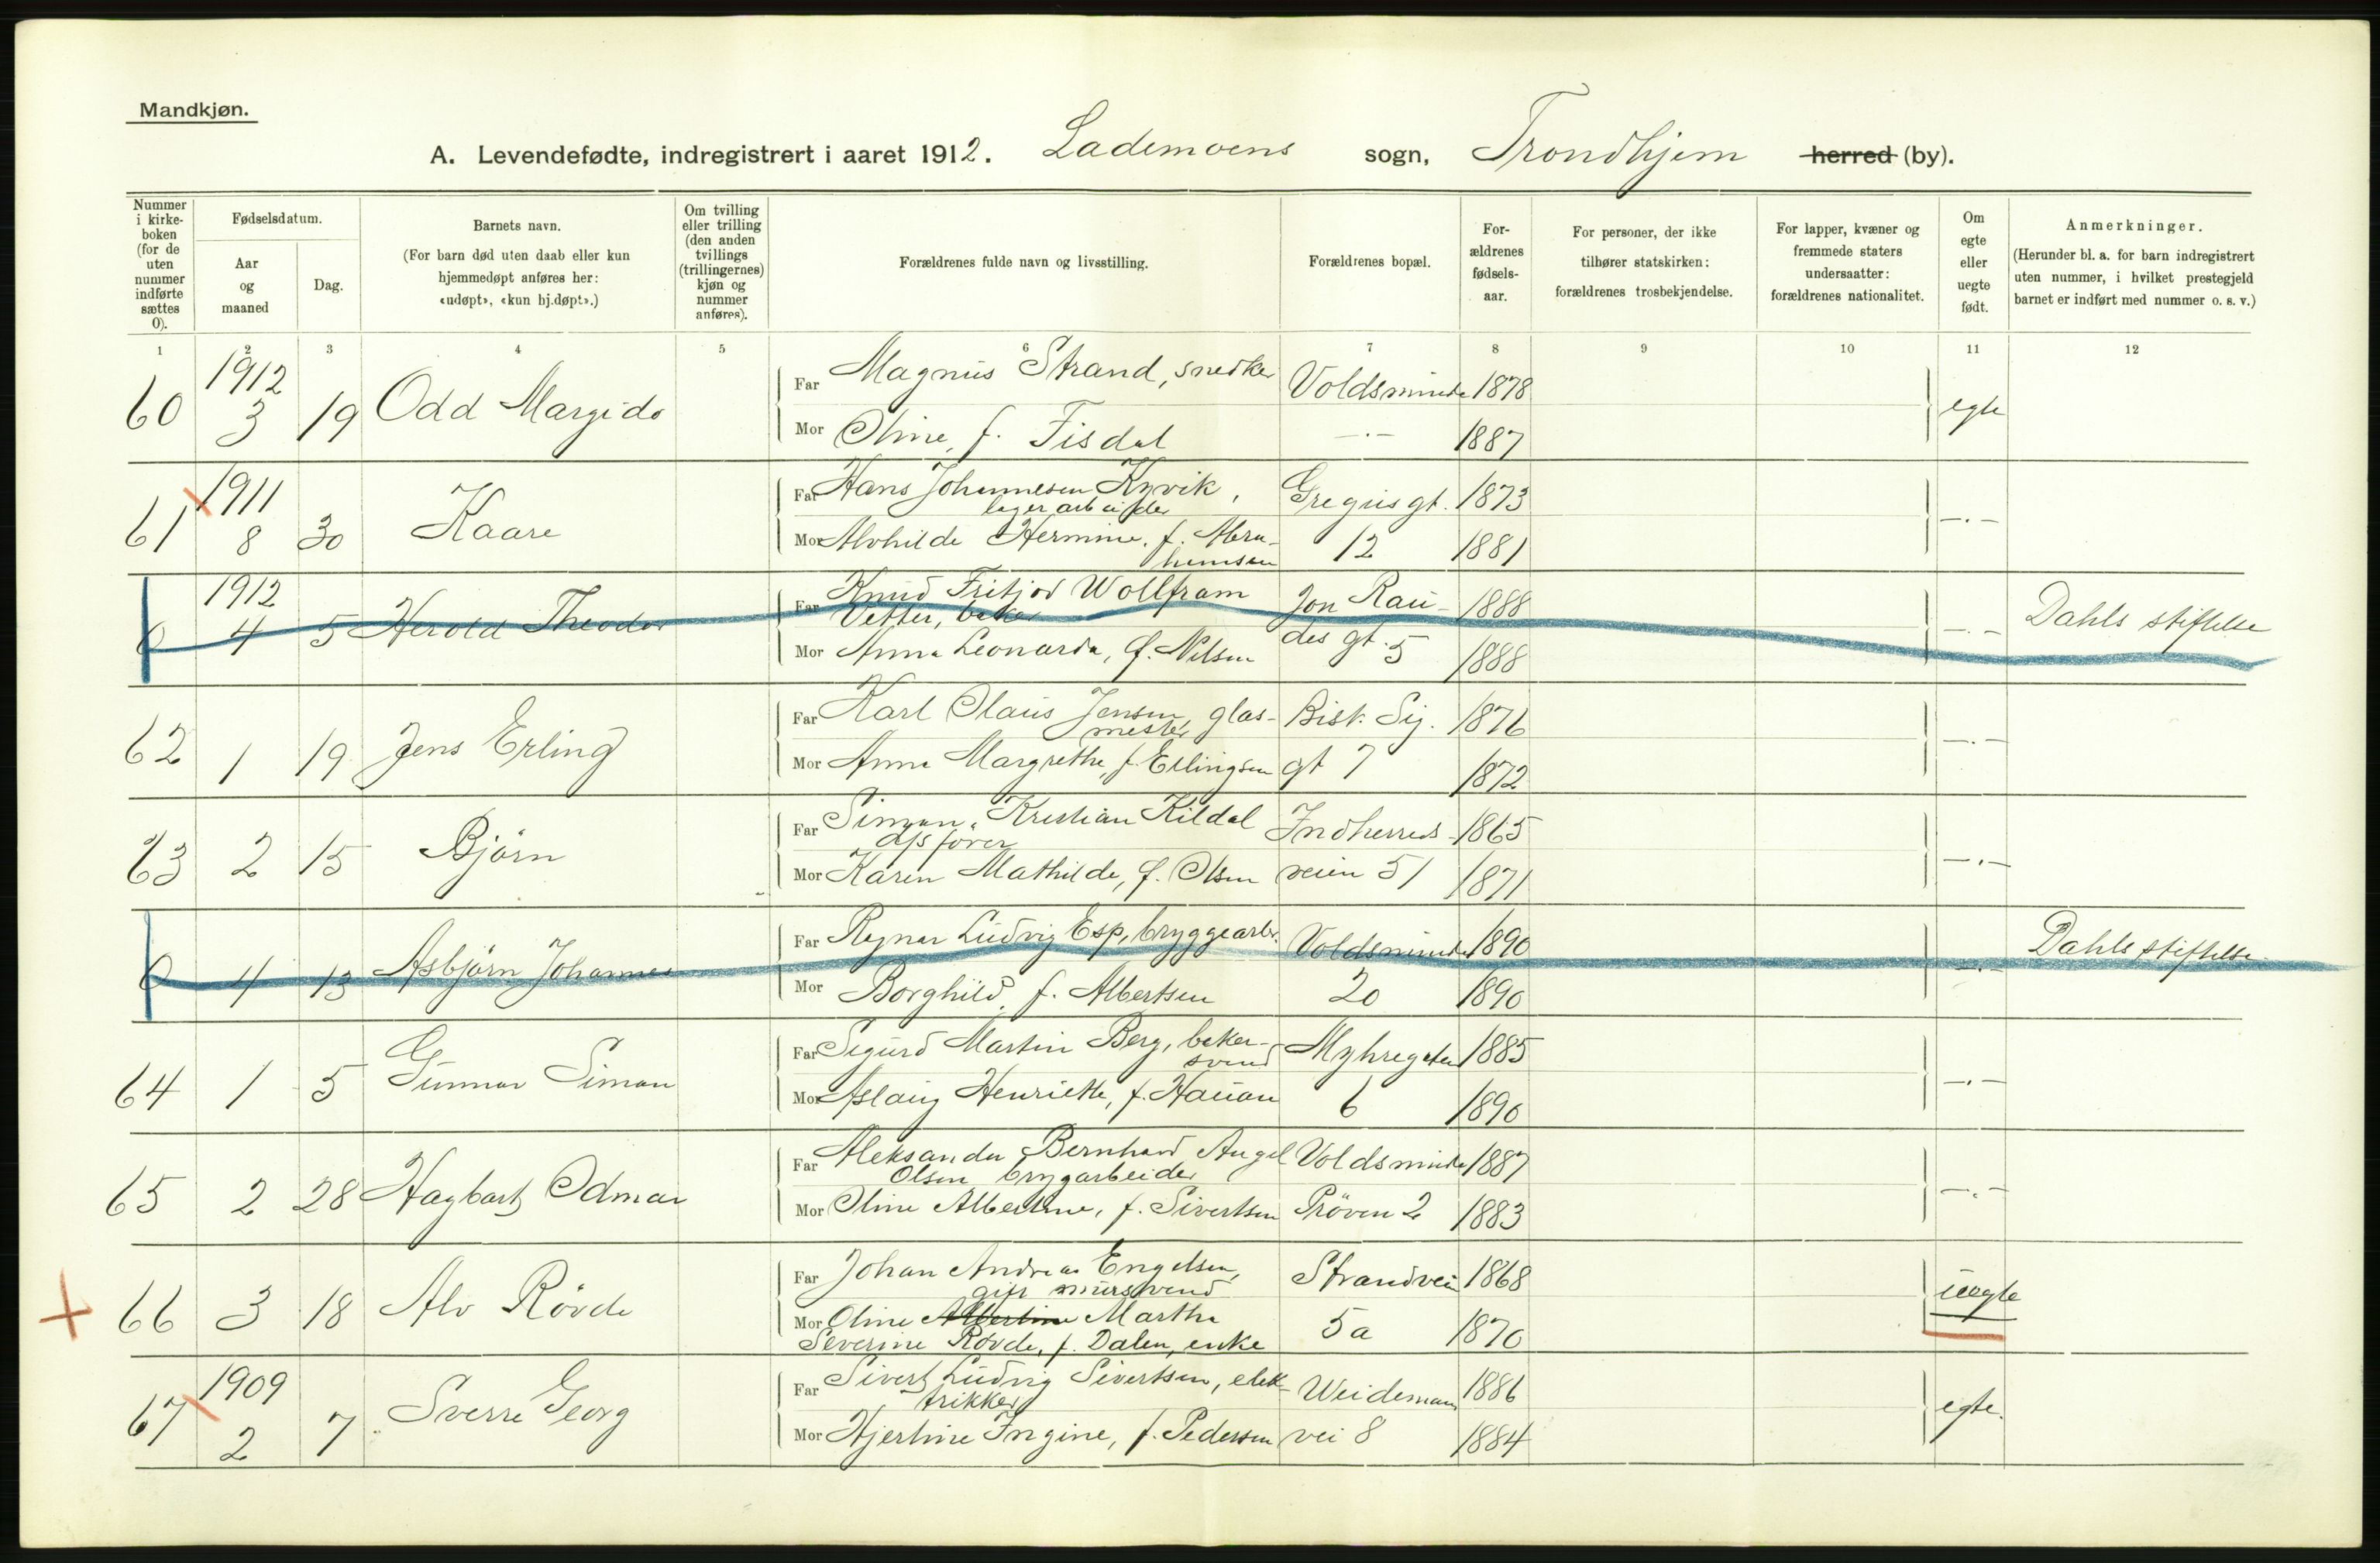 Mandkjøn.
A. Levendefødte, indregistrert i aaret 1912. Lademoens sogn, Trondhjem herred (by).
Nummer i kirke-boken (for de uten nummer indførte sættes 0).
Fødselsdatum.
Aar og maaned
Dag.
Barnets navn.
(For barn død uten daab eller kun hjemmedøpt anføres her: «udøpt», «kun hj.døpt».)
Om tvilling eller trilling (den anden tvillings (trillingernes) kjøn og nummer anføres).
Forældrenes fulde navn og livsstilling.
Forældrenes bopæl.
For-ældrenes fødsels-aar.
For personer, der ikke tilhører statskirken: forældrenes trosbekjendelse.
For lapper, kvæner og fremmede staters undersaatter: forældrenes nationalitet.
Om egte eller uegte født.
Anmerkninger.
(Herunder bl. a. for barn indregistrert uten nummer, i hvilket prestegjeld barnet er indført med nummer o. s. v.)
1 2 3 4 5 6 7 8 9 10 11 12
60 1912 3 19 Odd Margido Far Magnus Strand, snedker Voldsminde 1878 egte
Mor Oline, f. Fisdal —·— 1887
61 1911 8 30 Kaare Far Hans Johannesen Kyvik, Gregus gt. 1873 —·—
lagerarbeider
Mor Alvhilde Hermine, f. Abra- 12 1881
hamsen
0 1912 4 5 Herold Theodor Far Knud Fritjod Wollfram Jon Rau- 1888 —·— Dahls stiftelse
Vetter, baker
Mor Anna Leonarda, f. Nilsen des gt. 5 1888
62 1 19 Jens Erling Far Karl Olaus Jensen, glas- Bisk. Sig. 1876 —·—
mester
Mor Anna Margrethe, f. Erlingsen gt 7 1872
63 2 15 Bjørn Far Simon Kristian Kildal Indherreds- 1865 —·—
Mor Karen Mathilde, f. Olsen veien 51 1871
0 4 13 Asbjørn Johannes Far Ragnar Ludvig Esp, bryggearb. Voldsminde 1890 —·— Dahls stiftelse
Mor Borghild, f. Albertsen 20 1890
64 1 5 Gunnar Simon Far Sigurd Martin Berg, baker- Myhregaten 1885 —·—
svend
Mor Aslaug Henriette, f. Hauan 6 1890
65 2 28 Hagbart Odmar Far Aleksander Bernhard Angel Voldsminde 1887 —·—
Olsen brygarbeider
Mor Oline Albertine, f. Sivertsen Prøven 2 1883
66 3 18 Alv Røvde Far Johan Andreas Engelsen, Strandvei 1868 uegte
gift mursvend
Mor Oline Albertine Martha 5a 1870
Severine Røvde, f. Dalen, enke
67 1909 2 7 Sverre Georg Far Sivert Ludvig Sivertsen, elek- Weidemans 1886 egte.
trikker
Mor Hjertine Ingine, f. Pedersen vei 8 1884